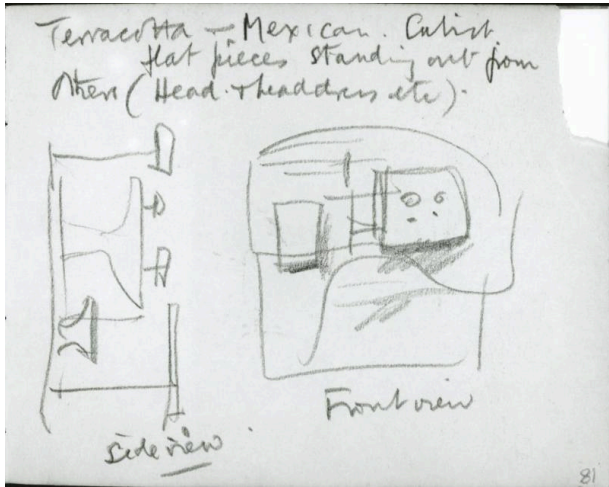 Terracotta — Mexican. Cubist
flat pieces standing out from
others (Head & headdress etc).
Side view
Front view
81